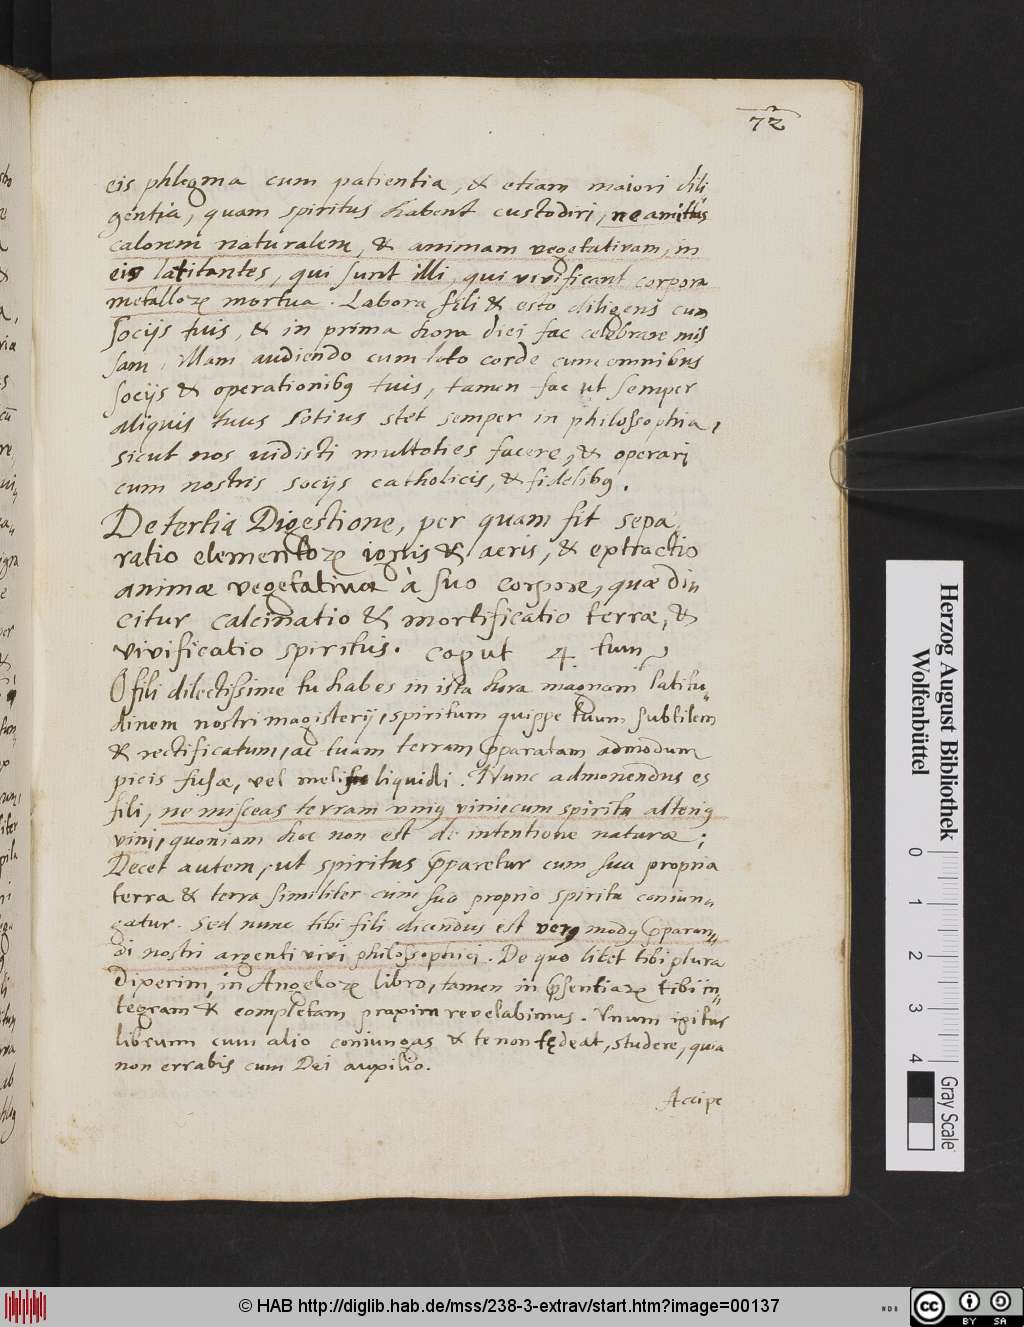 72
eis phlegma cum patientia, & etiam maiori dili
gentia, quam spiritus habent custodiri, ne amittas
calorem naturalem, & animam vegetativam, in
eis latitantes, qui sunt illi, qui vivificant corpora
metalloꝝ mortua. Labora fili & esto diligens cum
socijs tuis, & in prima hora diei fac celebrare mis
sam, illam audiendo cum loto corde cum omnibus
socijs & operationibꝰ tuis, tamen fac ut semper
aliquis tuus sotius stet semper in philossophia,
sicut nos vidisti multoties facere, & operari
cum nostris socijs catholicis, & fidelibꝰ.
De tertia Digestione, per quam fit sepa„
ratio elementoꝝ ignis & aeris, & extractio
animæ vegetativæ à suo corpore, quæ din
citur calcinatio & mortificatio terræ, &
vivificatio spiritus. caput 4. tum
O fili dilectissime tu habes in ista hora magnam latitu„
dinem nostri magisterij, spiritum quippe tuum subtilem
& rectificatum, ac tuam terram p̄paratam admodum
picis fusæ, vel meli liquidi. Nunc admonendus es
fili, ne misceas terram uniꝰ vini cum spiritu alteriꝰ
vini, quoniam hoc non est de intentione naturæ;
Decet autem, ut spiritus p̄paretur cum sua propria
terra & terra similiter cum suo proprio spiritu coniun„
gatur. Sed nunc tibi fili dicendus est verꝰ modꝰ p̄paran„
di nostri argenti vivi philossophici. De quo licet tibi plura
dixerim, in Angeloꝝ libro, tamen in p̄sentiaꝝ tibi in„
tegram & completam praxim revelabimus. Unum igitur
librum cum alio coniungas & te non tędeat, studere, quia
non errabis cum Dei auxilio.
Accipe
Herzog August Bibliothek
Wolfenbüttel
0 1 2 3 4
Gray Scale
© HAB http://diglib.hab.de/mss/238-3-extrav/start.htm?image=00137
cc BY SA